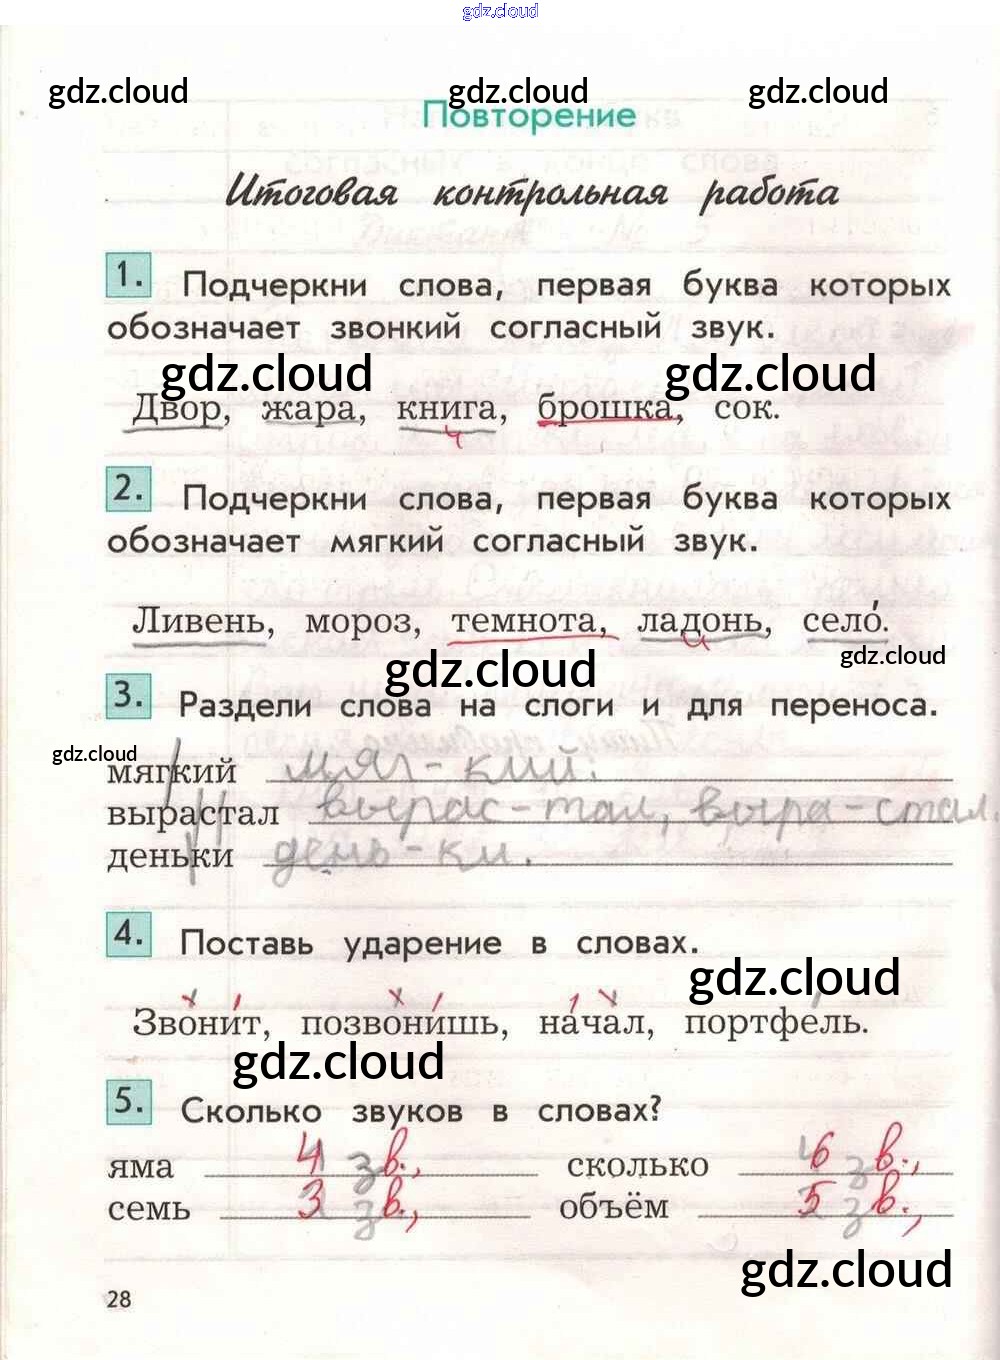 gdz.cloud
gdz.cloud gdz.cloud gdz.cloud
Повторение
Итоговая контрольная работа
1. Подчеркни слова, первая буква которых
обозначает звонкий согласный звук.
gdz.cloud gdz.cloud
Двор, жара, книга, брошка, сок.
2. Подчеркни слова, первая буква которых
обозначает мягкий согласный звук.
Ливень, мороз, темнота, ладонь, село.
gdz.cloud gdz.cloud
3. Раздели слова на слоги и для переноса.
gdz.cloud
мягкий мяг-кий.
вырастал вырас-тал, выра-стал.
деньки день-ки.
4. Поставь ударение в словах.
gdz.cloud
Звонит, позвонишь, начал, портфель.
gdz.cloud
5. Сколько звуков в словах?
яма 4 зв., сколько 6 зв.,
семь 3 зв., объём 5 зв.,
gdz.cloud
28